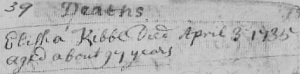 39 Deaths
Elisha Kebbe Died April 3 1735
aged about 77 years